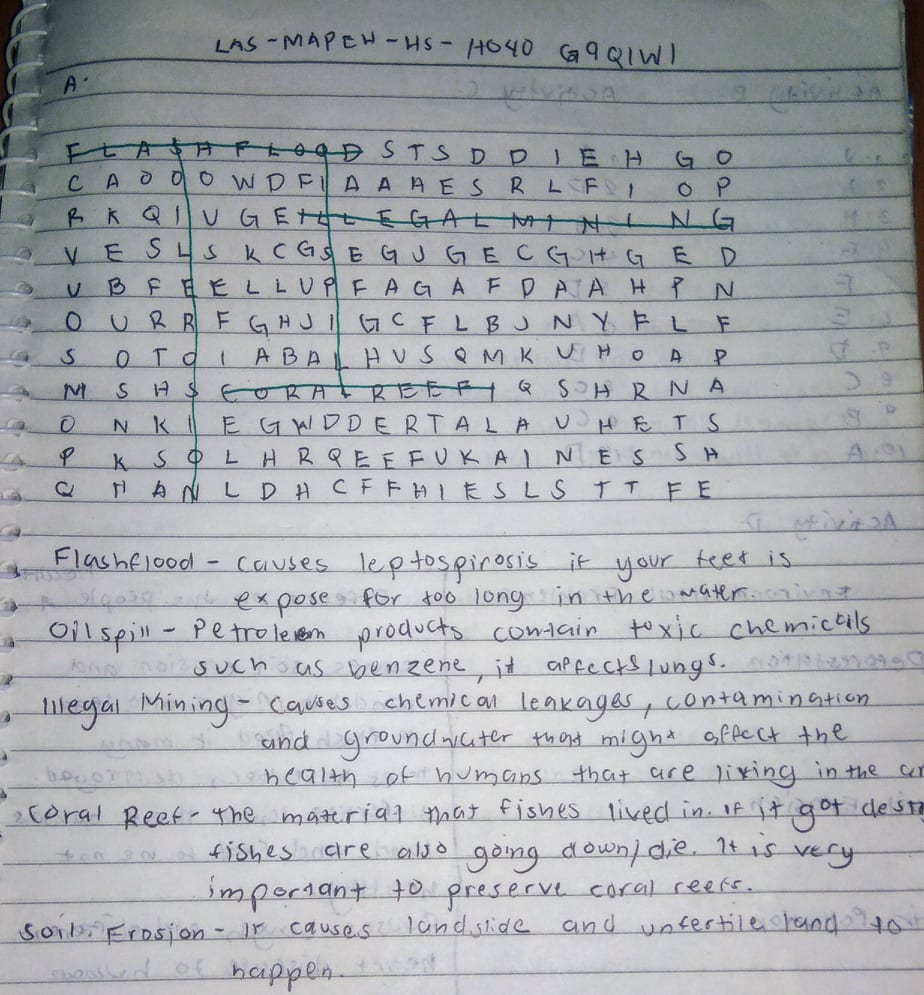 LAS-MAPEH-HS-HO40 G9Q1W1
A.
F L A S H F L O O D S T S D D I E H G O
C A O O O W D F I A A A E S R L F I O P
R K Q I U G E I L L E G A L M I N I N G
V E S L S K C G S E G J G E C G H G E D
U B F E E L L U P F A G A F D A A H P N
O U R R F G H J I G C F L B J N Y F L F
S O T O I A B A L H V S Q M K U H O A P
M S H S C O R A L R E E F I Q S H R N A
O N K I E G W D D E R T A L A U H E T S
P K S O L H R Q E E F U K A I N E S S H
Q H A N L D H C F F H I E S L S T T F E
Flashflood - causes leptospirosis if your feet is
expose for too long in the water.
Oil spill - Petroleum products contain toxic chemicals
such as benzene, it affects lungs.
Illegal Mining - causes chemical leakages, contamination
and groundwater that might affect the
health of humans that are living in the
Coral Reef - the material that fishes lived in. If it got
fishes are also going down/die. It is very
important to preserve coral reefs.
Soil Erosion - It causes landslide and unfertile land to
happen.